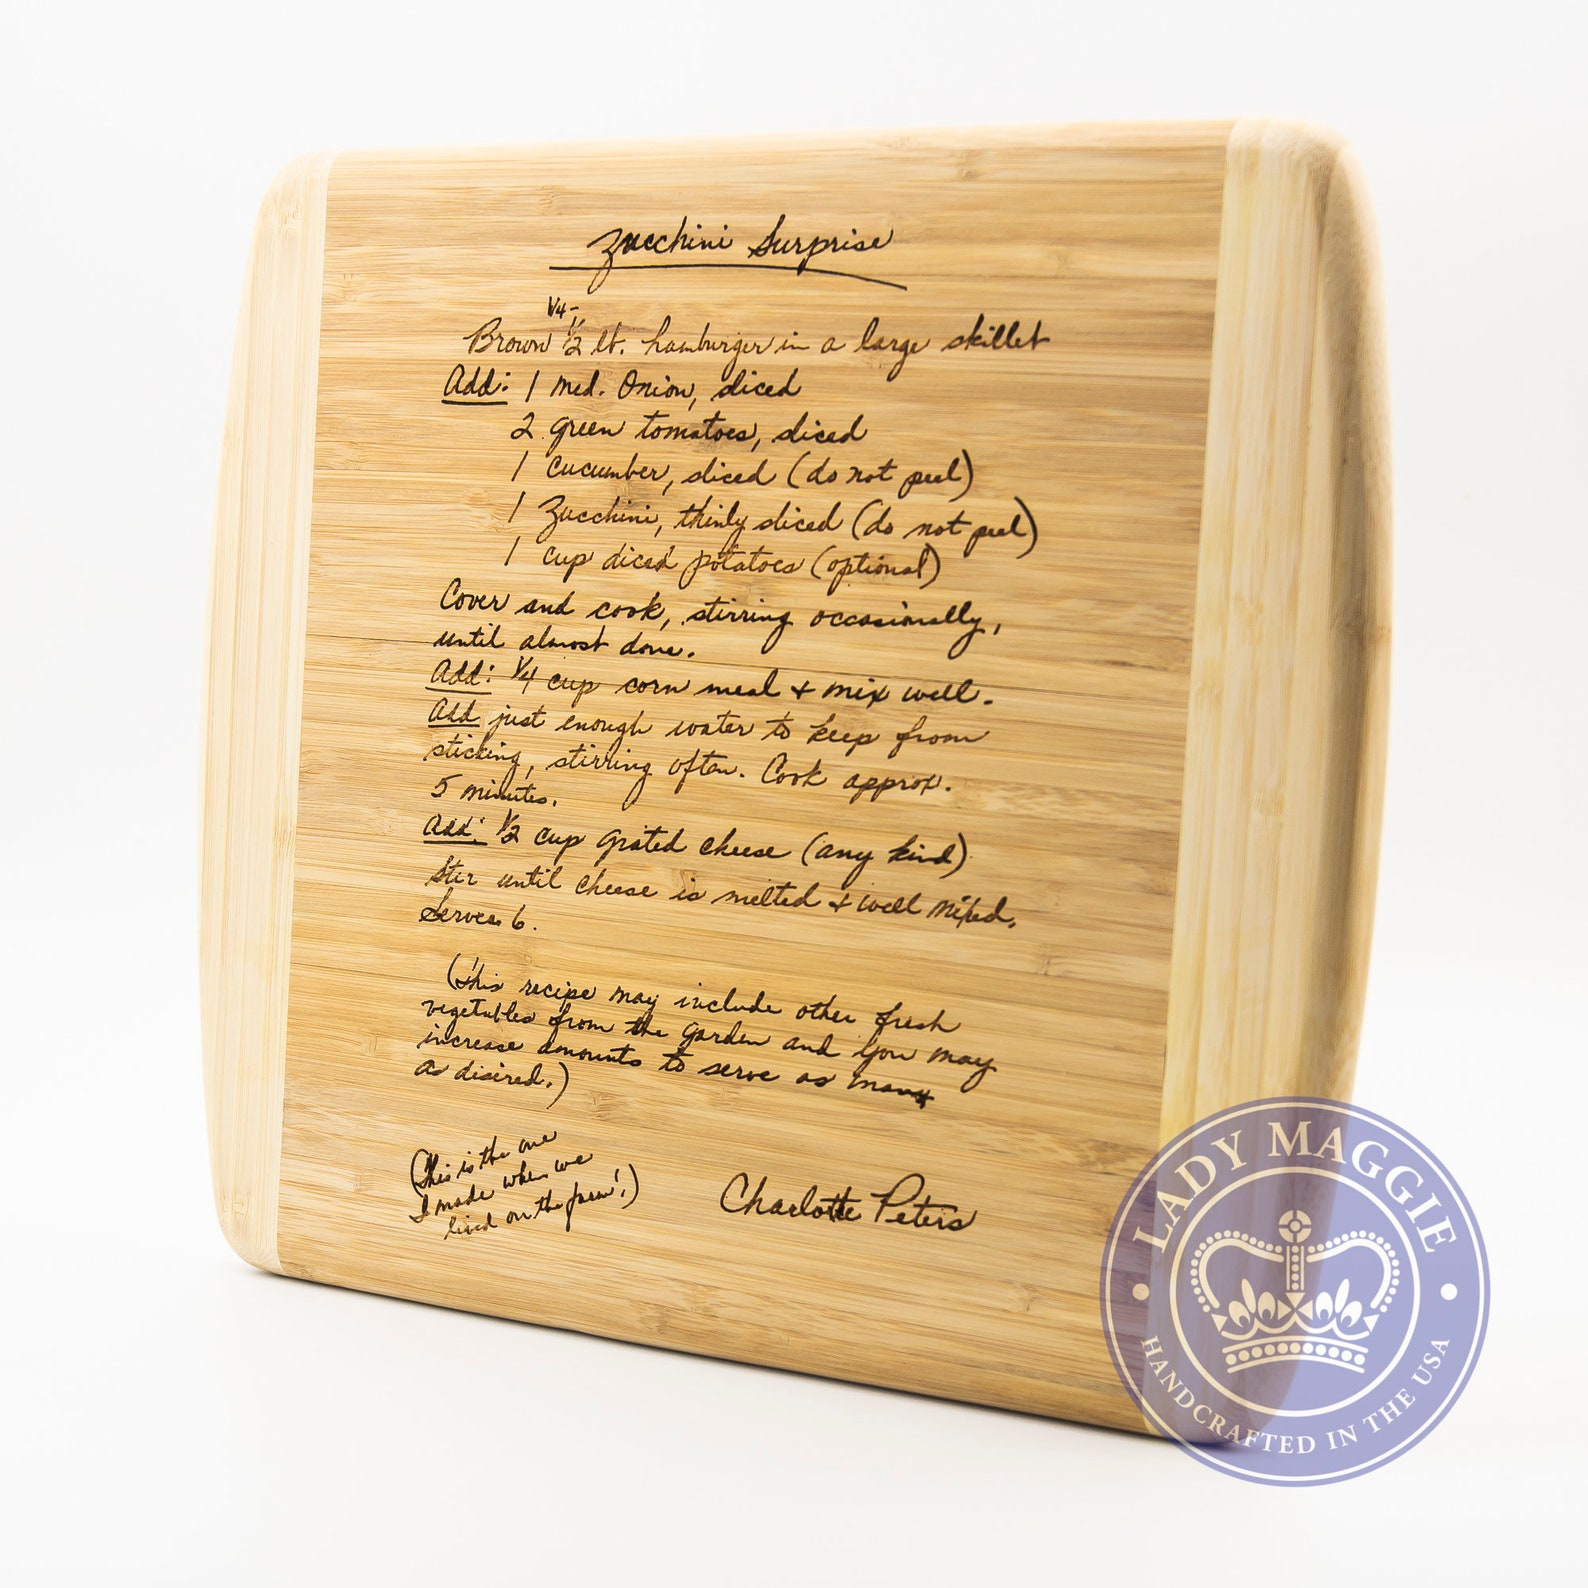 Zucchini Surprise
1/4-
Brown 1/2 lb. hamburger in a large skillet
Add: 1 med. Onion, sliced
2 green tomatoes, sliced
1 cucumber, sliced (do not peel)
1 Zucchini, thinly sliced (do not peel)
1 cup diced potatoes (optional)
Cover and cook, stirring occasionally,
until almost done.
Add: 1/4 cup corn meal + mix well.
Add just enough water to keep from
sticking, stirring often. Cook approx.
5 minutes.
Add: 1/2 cup grated cheese (any kind)
Stir until cheese is melted + well mixed.
Serves 6.
(This recipe may include other fresh
vegetables from the garden and you may
increase amounts to serve as many
as disired.)
(This is the one
I made when we
lived on the farm!)
Charlotte Peters
LADY MAGGIE
HANDCRAFTED IN THE USA